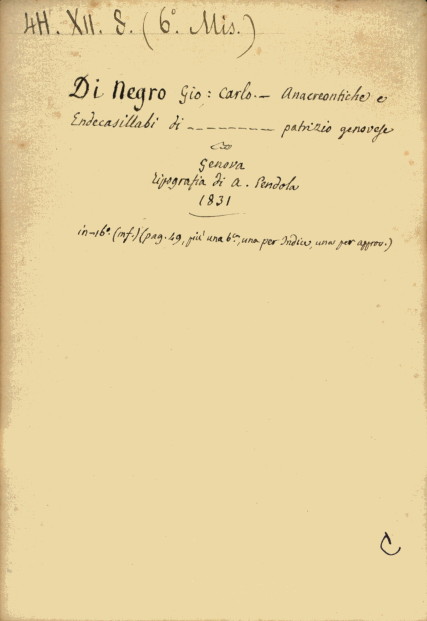 4H. XII. 8. (6° Mis.)
Di Negro Gio: Carlo. — Anacreontiche e
Endecasillabi di _ _ _ _ _ _ _ _ patrizio genovese
Genova
Tipografia di A. Pendola
1831
in-16°. (mf.) (pag. 49, più una b.ca, una per Indice, una per approv.)
C